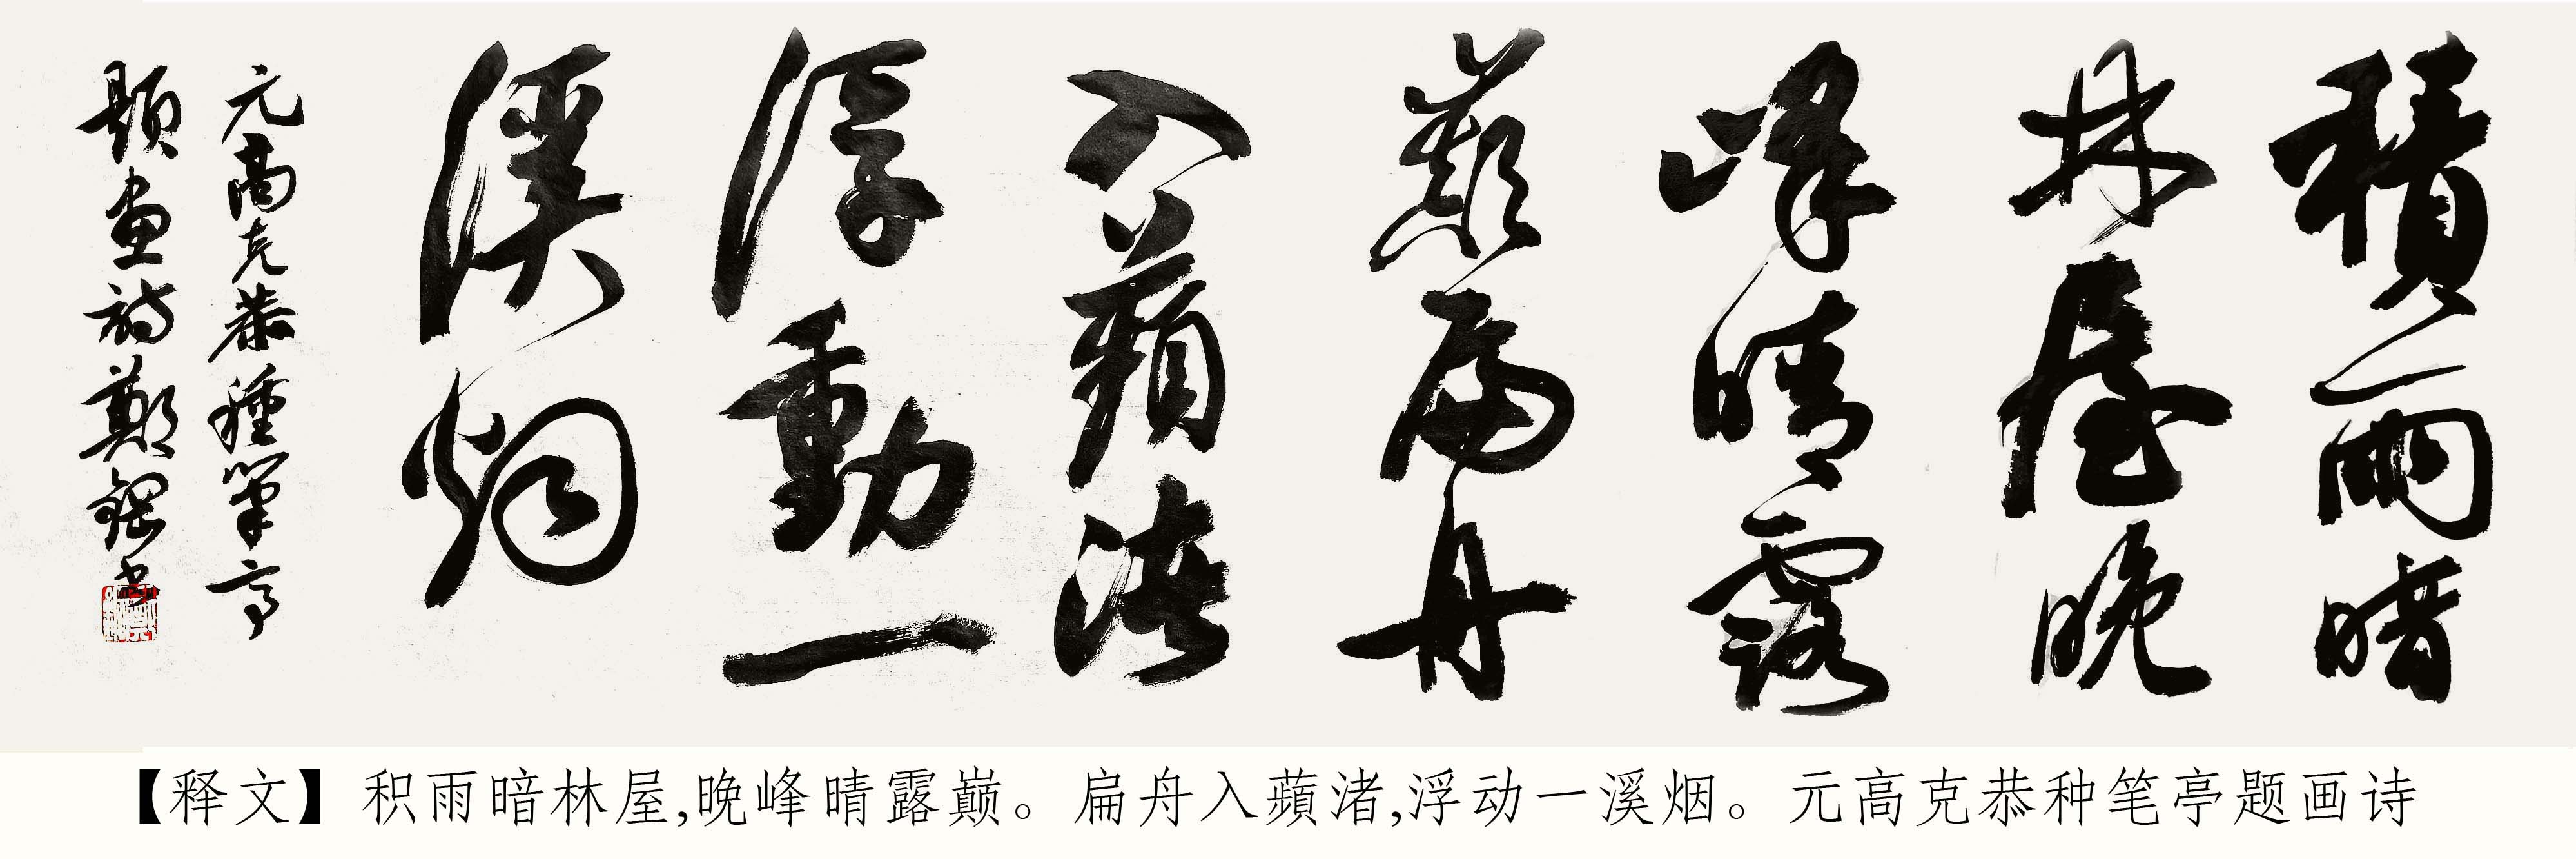 積雨暗
林屋晚
峰晴露
巔扁舟
入蘋渚
浮動一
溪烟
元高克恭種筆亭
題畫詩鄭鍔書
【释文】积雨暗林屋,晚峰晴露巅。扁舟入蘋渚,浮动一溪烟。元高克恭种笔亭题画诗